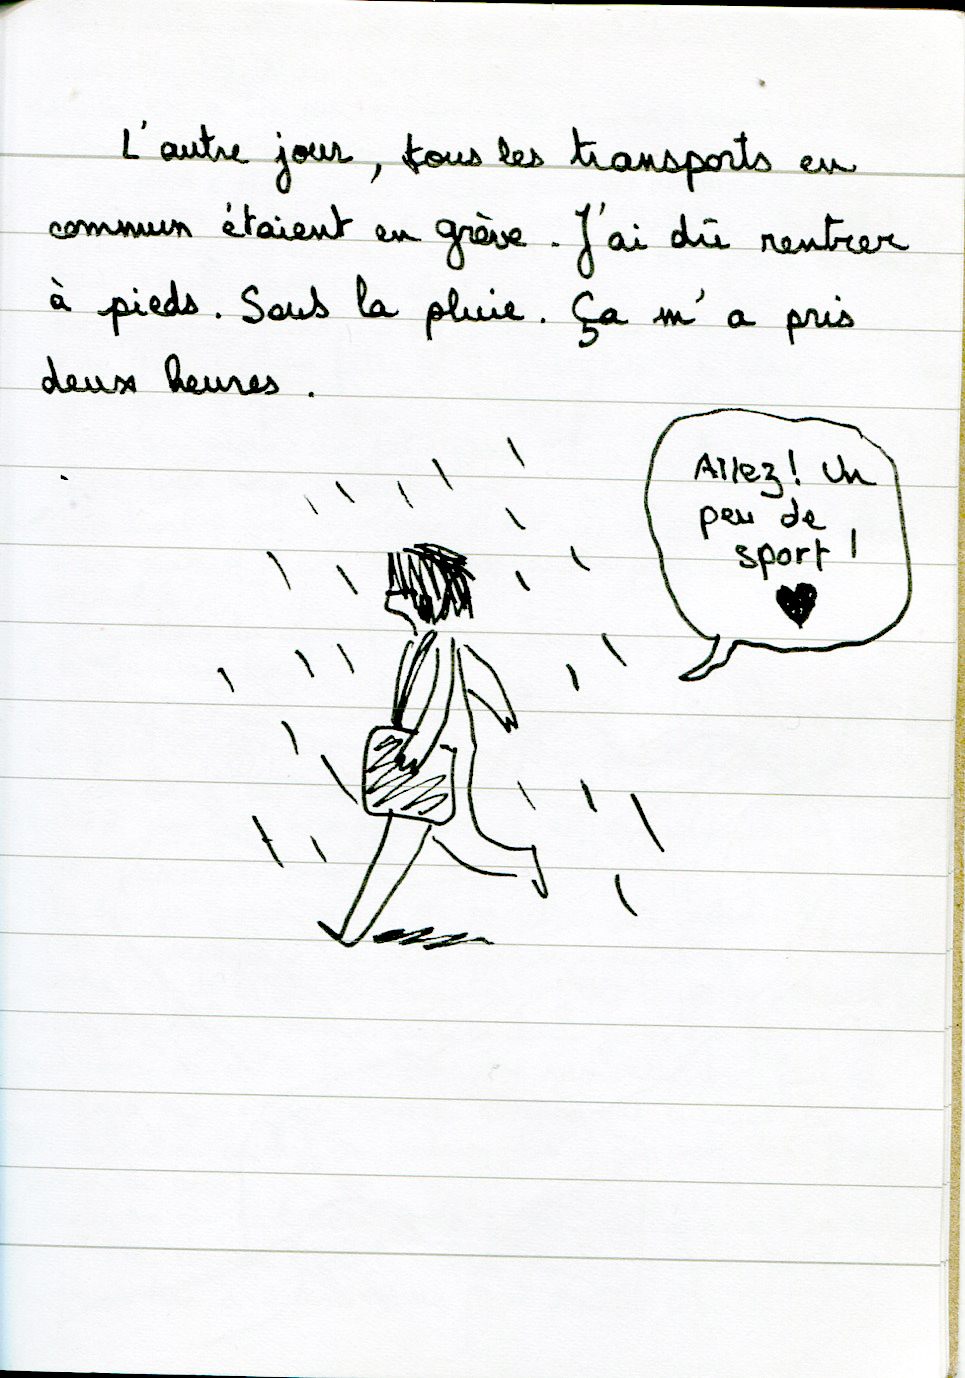 L'autre jour, tous les transports en
commun étaient en grève. J'ai dû rentrer
à pieds. Sous la pluie. Ça m'a pris
deux heures.
Allez! Un
peu de
sport!